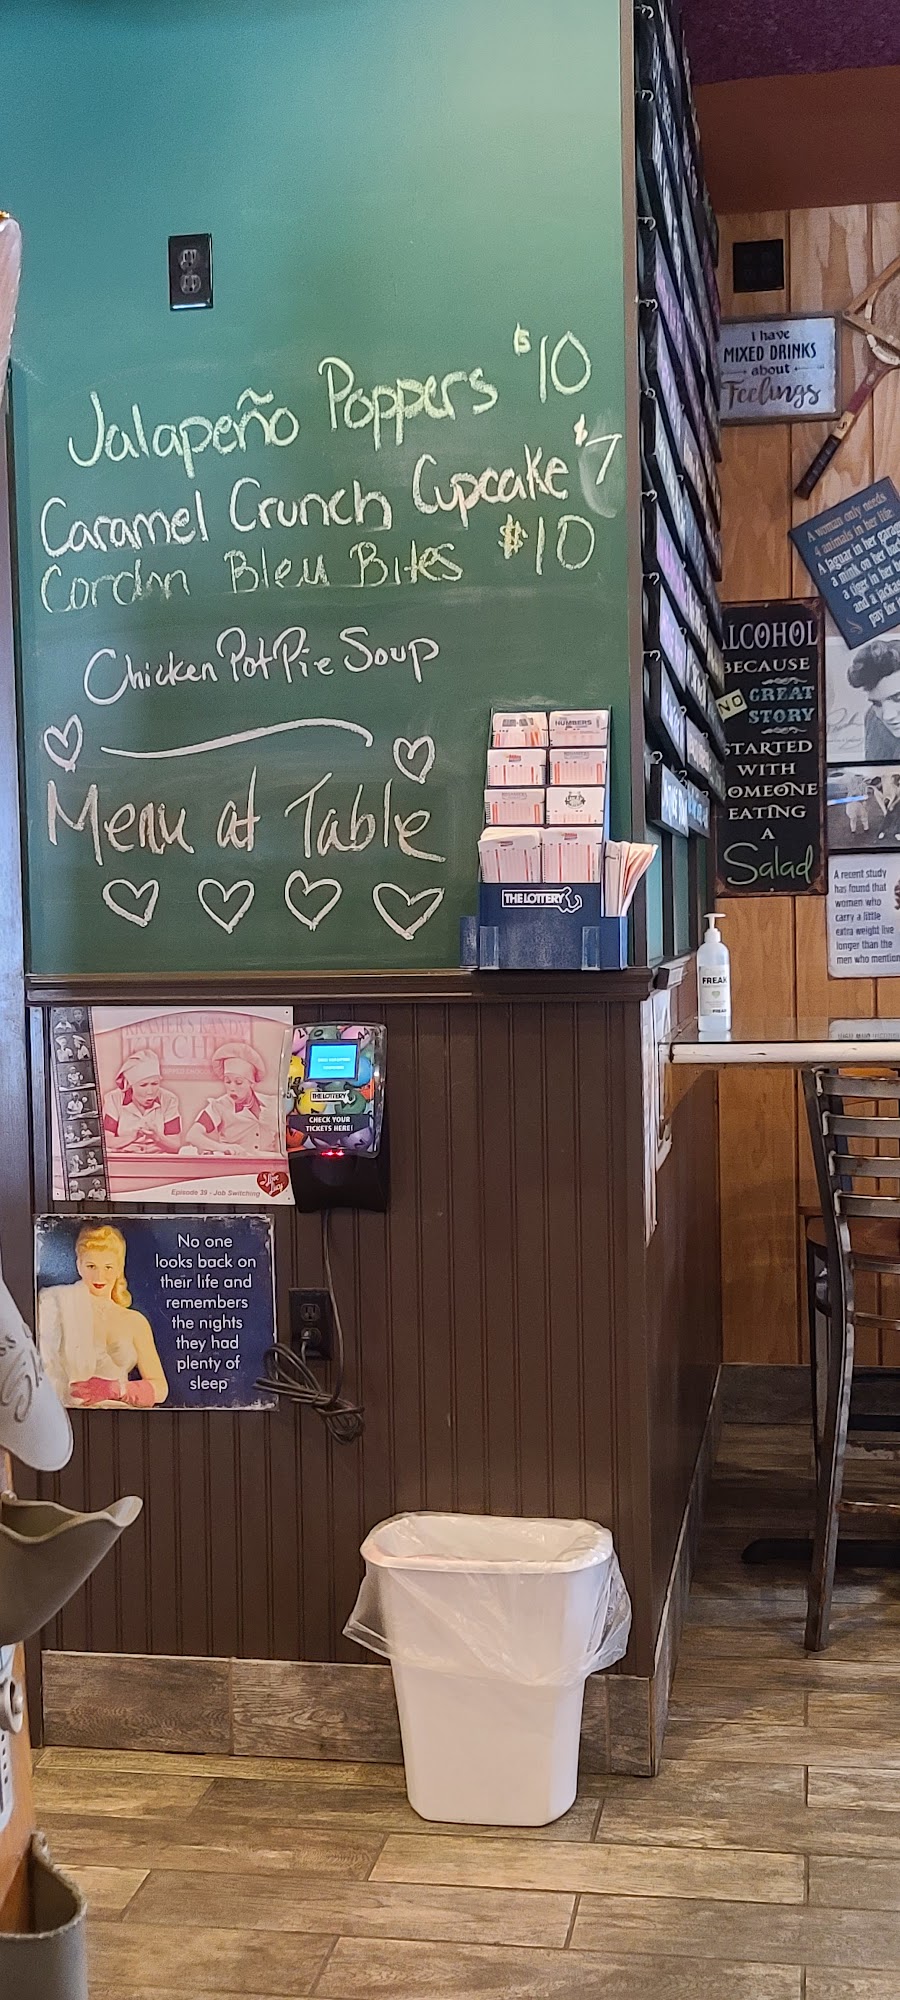 Jalapeño Poppers $10
Caramel Crunch Cupcake $7
Cordon Bleu Bites $10
Chicken Pot Pie Soup
Menu at Table
NUMBERS
THE LOTTERY
I have
MIXED DRINKS
about
Feelings
A woman only needs
4 animals in her life.
A jaguar in her garage
a mink on her back
a tiger in her
and a jackass
pay for
ALCOHOL
BECAUSE
NO GREAT
STORY
STARTED
WITH
SOMEONE
EATING
A
Salad
A recent study
has found that
women who
carry a little
extra weight live
longer than the
men who mention
FREAK
KRAMER'S KANDY
KITCHEN
Episode 39 - Job Switching
I Love Lucy
THE LOTTERY
CHECK YOUR
TICKETS HERE!
No one
looks back on
their life and
remembers
the nights
they had
plenty of
sleep